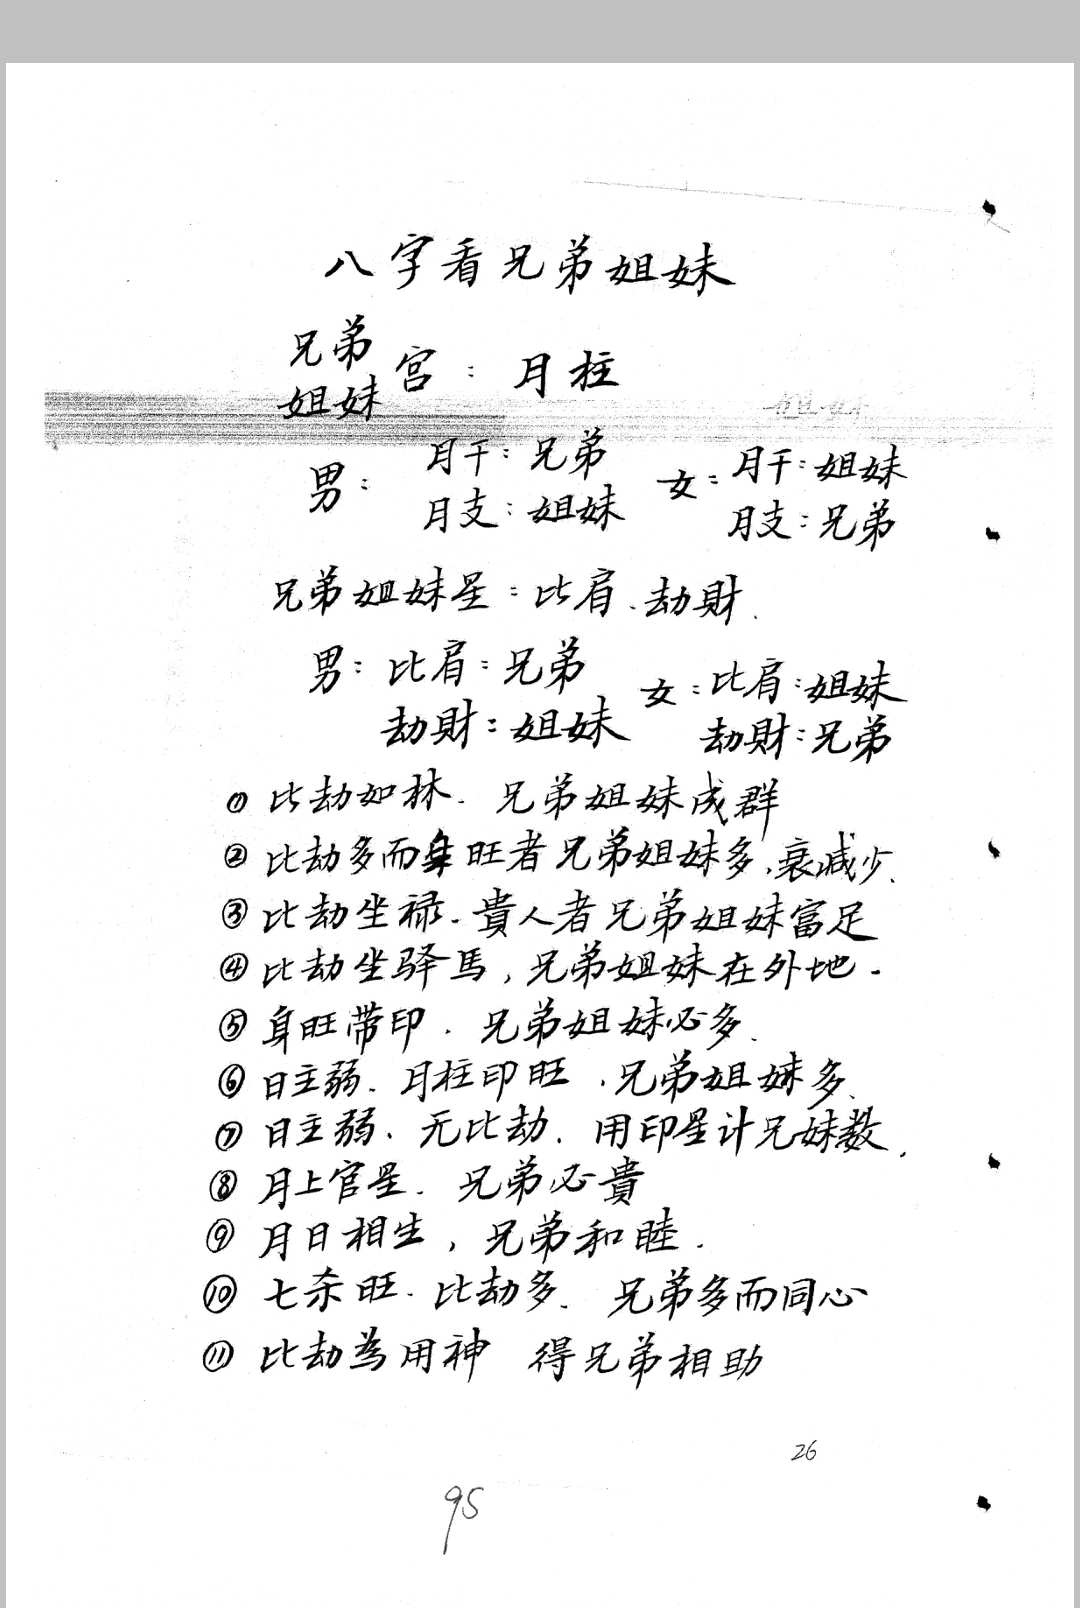 八字看兄弟姐妹
兄弟
姐妹 宫：月柱
男：月干：兄弟 女：月干：姐妹
月支：姐妹 月支：兄弟
兄弟姐妹星：比肩、劫財.
男：比肩：兄弟 女：比肩：姐妹
劫財：姐妹 劫財：兄弟
① 比劫如林. 兄弟姐妹成群
② 比劫多而身旺者兄弟姐妹多,衰减少.
③ 比劫坐禄. 貴人者兄弟姐妹富足
④ 比劫坐驿馬, 兄弟姐妹在外地.
⑤ 身旺带印. 兄弟姐妹必多.
⑥ 日主弱. 月柱印旺, 兄弟姐妹多.
⑦ 日主弱. 无比劫. 用印星计兄妹数.
⑧ 月上官星. 兄弟必貴
⑨ 月日相生, 兄弟和睦.
⑩ 七杀旺. 比劫多. 兄弟多而同心
⑪ 比劫為用神 得兄弟相助
26
95